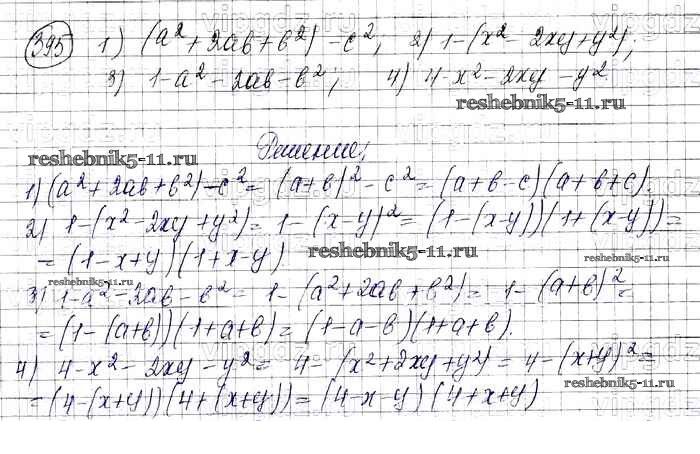 vipgdz.ru
395 1) (a² + 2ab + b²) - c²; 2) 1 - (x² - 2xy + y²);
3) 1 - a² - 2ab - b²; 4) 4 - x² - 2xy - y²
reshebnik5-11.ru
Решение:
reshebnik5-11.ru
1) (a² + 2ab + b²) - c² = (a + b)² - c² = (a + b - c)(a + b + c).
2) 1 - (x² - 2xy + y²) = 1 - (x - y)² = (1 - (x - y))(1 + (x - y)) =
= (1 - x + y)(1 + x - y)
reshebnik5-11.ru
reshebnik5-11.ru
reshebnik5-11.ru
3) 1 - a² - 2ab - b² = 1 - (a² + 2ab + b²) = 1 - (a + b)² =
= (1 - (a + b))(1 + a + b) = (1 - a - b)(1 + a + b).
4) 4 - x² - 2xy - y² = 4 - (x² + 2xy + y²) = 4 - (x + y)² =
reshebnik5-11.ru
= (4 - (x + y))(4 + (x + y)) = (4 - x - y)(4 + x + y)